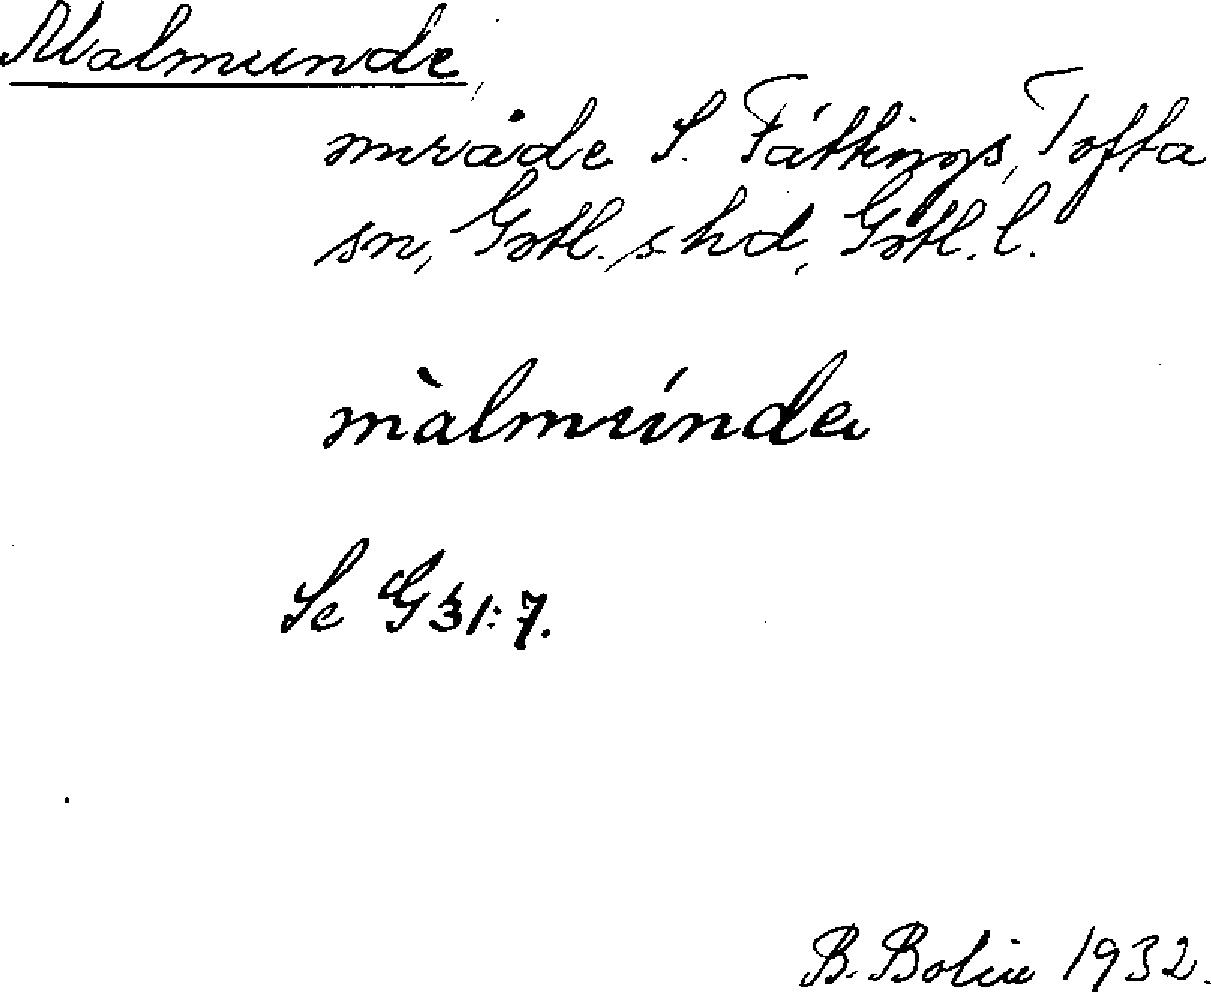 Malmunde,
område S. Fättings, Tofta
sn, Gotl. s. hd, Gotl. l.
màlmúnda
Se G 31:7.
B. Bolin 1932.